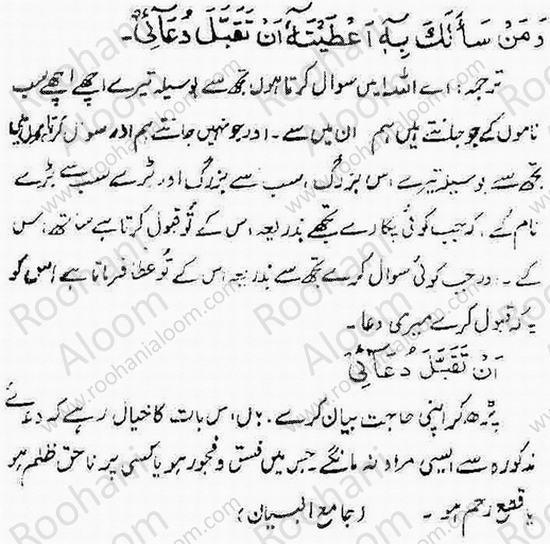 وَمَنْ سَأَلَكَ بِهٖ اَعْطَيْتَهٗ اَنْ تَقَبَّلَ دُعَآئِیْ۔
ترجمہ: اے اللہ! میں سوال کرتا ہوں تجھ سے بوسیلہ تیرے اچھے اچھے سب
ناموں کے جو جانتے ہیں ہم ان میں سے۔ اور جو نہیں جانتے ہم اور سوال کرتا ہوں میں
تجھ سے بوسیلہ تیرے اس بزرگ، سب سے بزرگ اور بڑے سب سے بڑے
نام کے، کہ جب کوئی پکارے تجھے بذریعہ اس کے تُو قبول کرتا ہے ساتھ اس
کے۔ اور جب کوئی سوال کرے تجھ سے بذریعہ اس کے تُو عطا فرماتا ہے اس کو
یہ کہ قبول کرے میری دعا۔
اَنْ تَقَبَّلَ دُعَآئِیْ
پڑھ کر اپنی حاجت بیان کرے۔ ہاں اس بات کا خیال رہے کہ دعائے
مذکورہ سے ایسی مراد نہ مانگے۔ جس میں فسق و فجور ہو یا کسی پر ناحق ظلم ہو
یا قطع رحم ہو۔ (جامع البیان)
Roohani Aloom
www.roohanialoom.com